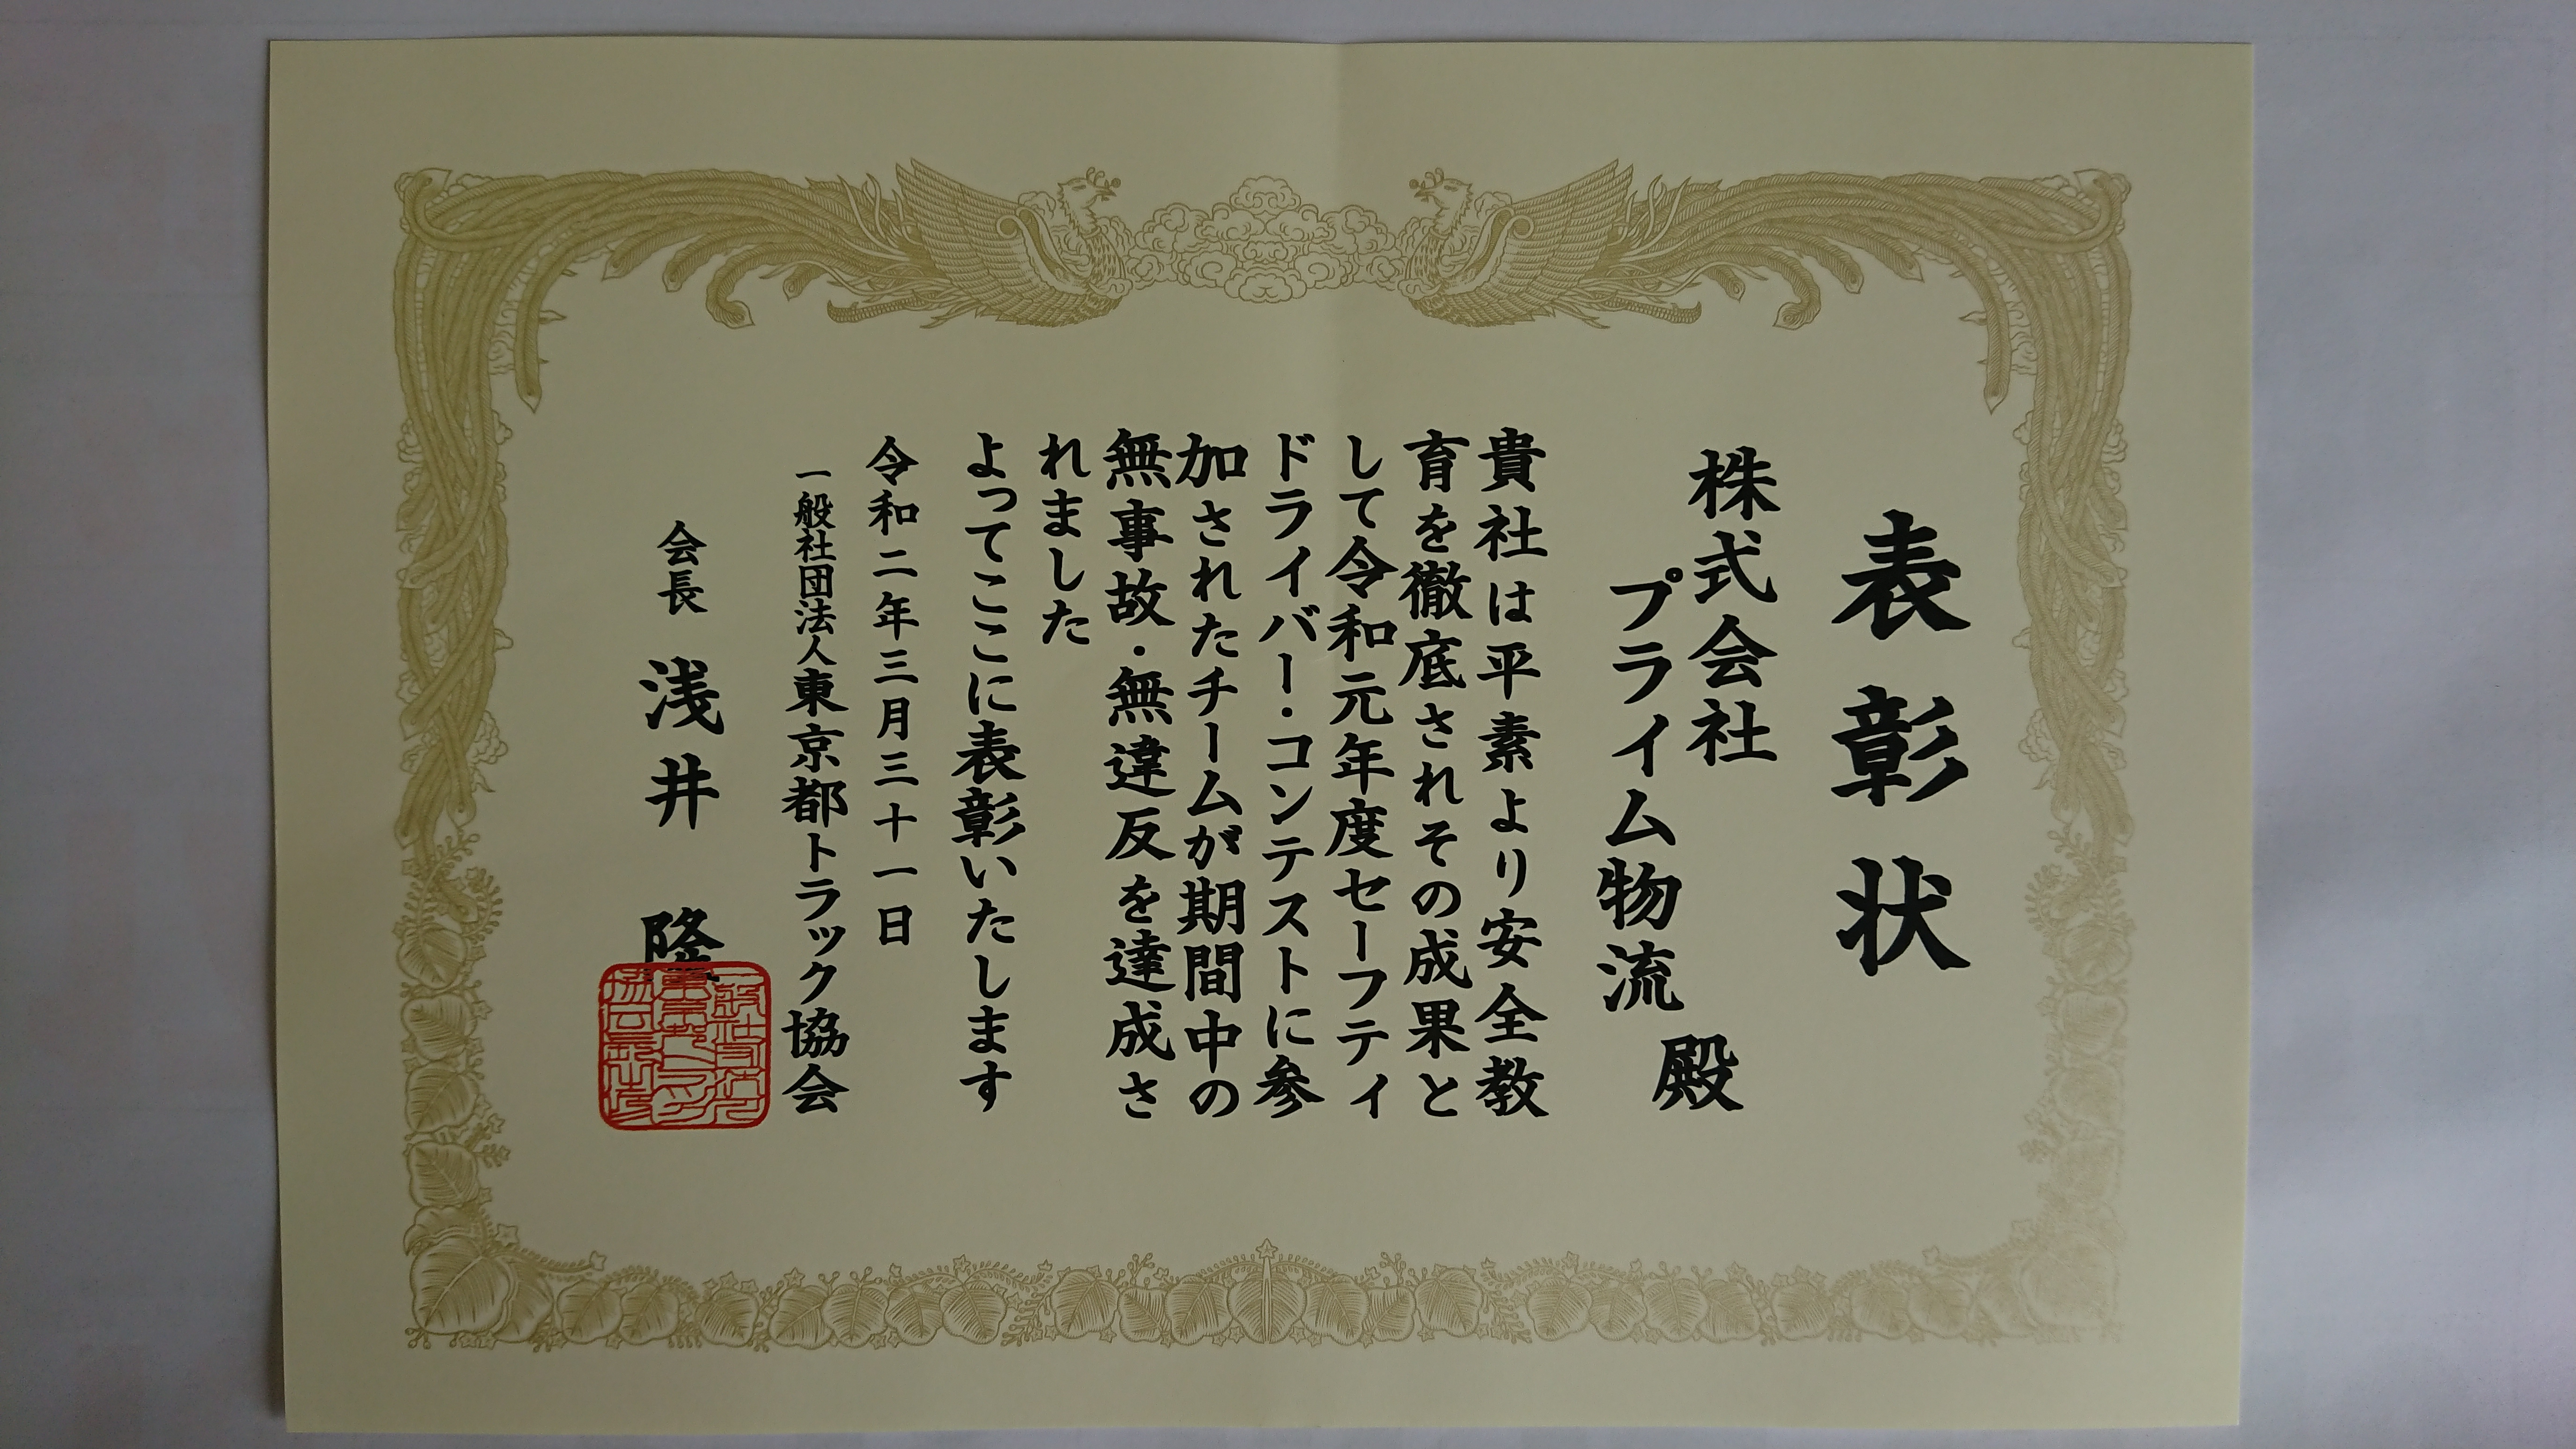 表彰状
株式会社
プライム物流
殿
貴社は平素より安全教
育を徹底されその成果と
して令和元年度セーフティ
ドライバー・コンテストに参
加されたチームが期間中の
無事故・無違反を達成さ
れました
よってここに表彰いたします
令和二年三月三十一日
一般社団法人東京都トラック協会
会長 浅井 隆